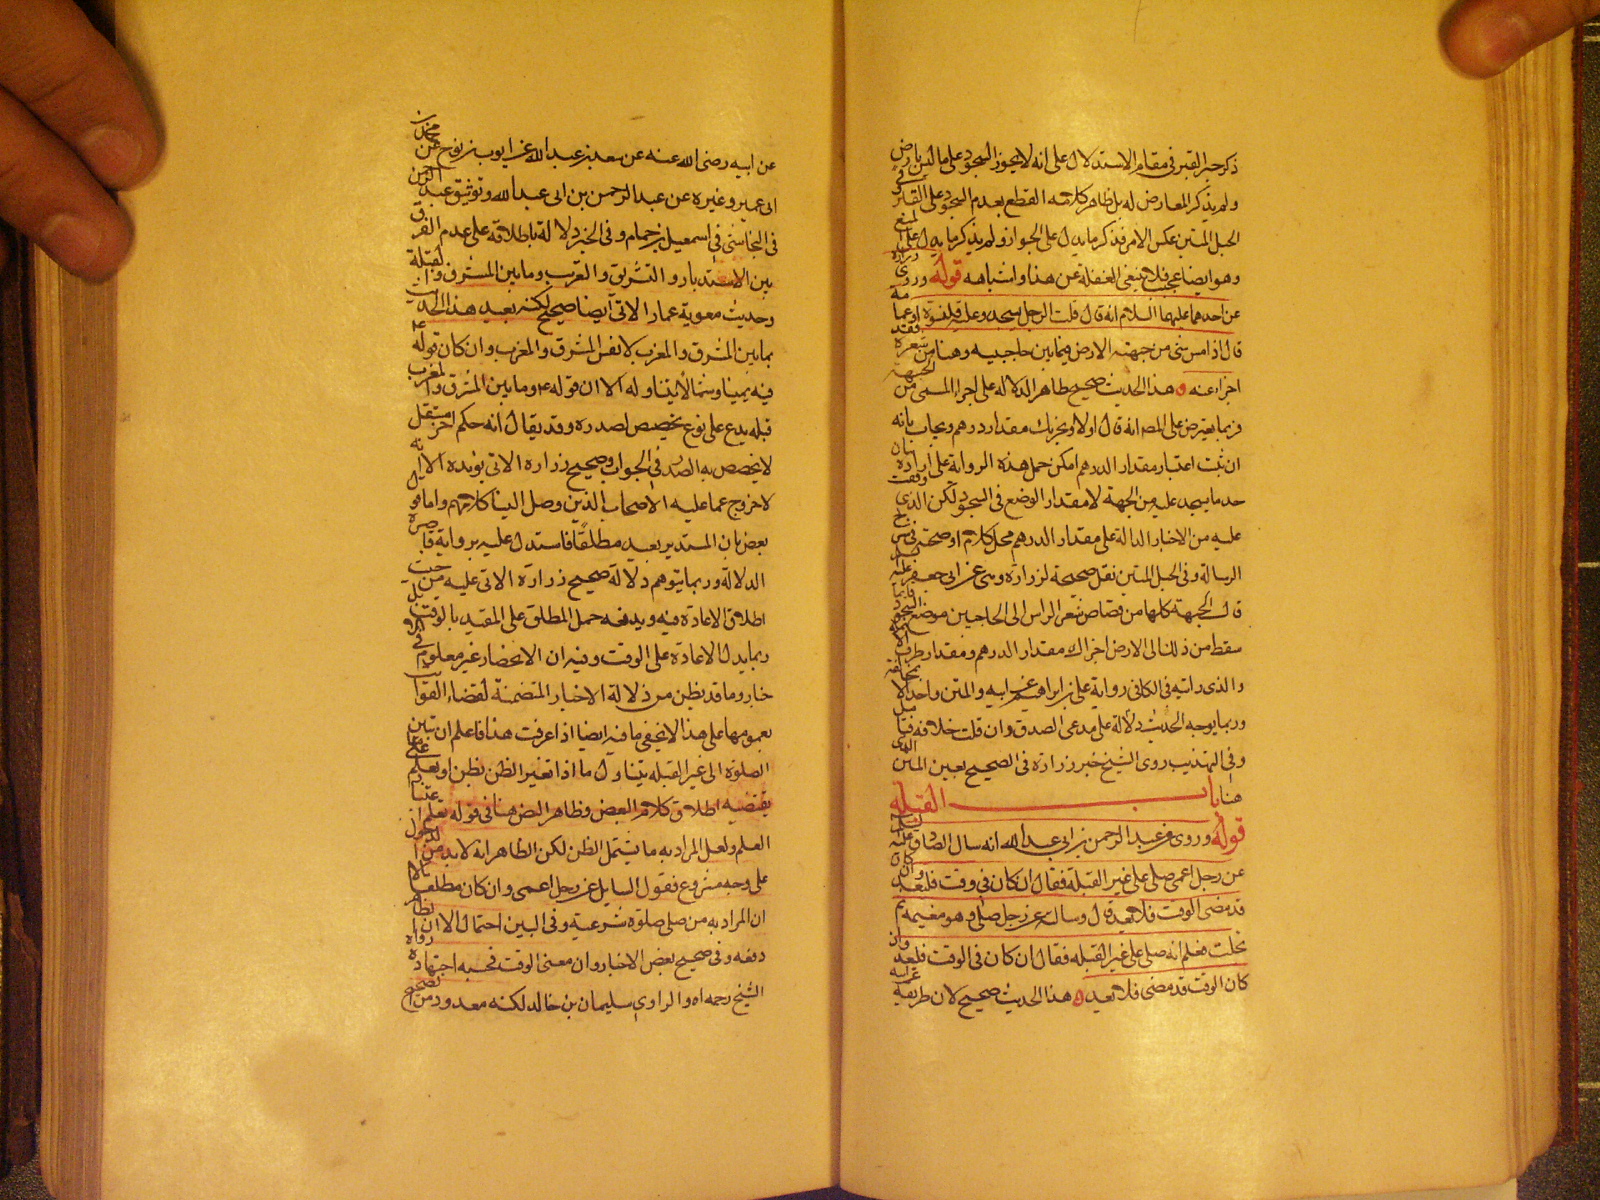 ذكر خبر القبر في مقام الاستدلال على انه لا يجوز السجود على ما ليس بارض
ولم يذكر المعارض له بل ظاهر كلامه القطع بعدم السجود على القبر وفي
الحبل المتين عكس الامر فذكر ما يدل على الجواز ولم يذكر ما يدل على المنع
وهو ايضا عجب فلا ينبغي الغفلة عن هذا واشباهه قوله وروى زرارة
عن احدهما عليهما السلام انه قال قلت الرجل يسجد وعليه قلنسوة او عمامة
قال اذا مس شئ من جبهته الارض فيما بين حاجبيه وقصاص شعره فقد
اجزأ عنه هذا الحديث صحيح ظاهر الدلالة على اجزاء المسمى من الجبهة
وربما يعترض على المص انه قال اولا ويجزيك مقدار درهم ويجاب بانه
ان ثبت اعتبار مقدار الدرهم امكن حمل هذه الرواية على ارادة بيان
حد ما يسجد عليه من الجبهة لا مقدار الوضع في السجود لكن الذي وقفت
عليه من الاخبار الدالة على مقدار الدرهم محل كلام اوضحته في
الرسالة وفي الحبل المتين نقل صحيحة لزرارة وهي عن ابي جعفر عليه
قال الجبهة كلها من قصاص شعر الراس الى الحاجبين موضع السجود فايما
سقط من ذلك الى الارض اجزاك مقدار الدرهم ومقدار طرف
والذي رايته في الكافي رواية علي بن ابراهيم عن ابيه والمتن واحد
وربما يوجه الحديث دلالة على مدعى الصدوق وان قلت خلافه فتامل
وفي التهذيب روى الشيخ خبر زرارة في الصحيح بعين المتن الذي
هنا باب القبلة
قوله وروي عن عبد الرحمن بن ابي عبد الله انه سال الصادق عليه السلام
عن رجل اعمى صلى على غير القبلة فقال ان كان في وقت فليعد وان كان
قد مضى الوقت فلا يعيد قال وسالته عن رجل صلى وهي مغيمة ثم
تجلت فعلم انه صلى على غير القبلة فقال ان كان في الوقت فليعد وان
كان الوقت قد مضى فلا يعيد هذا الحديث صحيح لان طريقه
عن ابيه رضي الله عنه عن سعد بن عبد الله عن ايوب بن نوح عن محمد بن
ابي عمير وغيره عن عبد الرحمن بن ابي عبد الله وتوثيق عبد الرحمن
في النجاشي في اسمعيل بن همام وفي الخبر دلالة باطلاقه على عدم الفرق
بين الاستدبار والتشريق والتغريب وما بين المشرق والقبلة
وحديث معوية عمار الاتي ايضا صحيح لكنه بعيد هذا الحديث
بما بين المشرق والمغرب لا نفس المشرق والمغرب وان كان قوله ع
فيه يمينا وشمالا يتناوله الا ان قوله ع وما بين المشرق والمغرب
قبله يدع على نوع تخصيص لصدره وقد يقال انه حكم اخر مستقل
لا يخصص به الصدر في الجواب وصحيح زرارة الاتي يؤيده الا انه
لا خروج عما عليه الاصحاب الذين وصل الينا كلامهم واما قول
بعض بان المستدير بعيد مطلقا فاستدل عليه برواية قاصرة
الدلالة وربما يتوهم دلالة صحيح زرارة الاتي عليه من حيث
اطلاق الاعادة فيه ويدفعه حمل المطلق على المقيد بالوقت
ربما يدل الاعادة على الوقت وفيه ان الانحصار غير معلوم في
خبار وما قد يظن من دلالة الاخبار المتضمنة لقضاء الفوائت
بعمومها على هذا لا يخفى ما فيه ايضا اذا عرفت هذا فاعلم ان تبين
الصلوة الى غير القبله يتناول ما اذا تغير الظن بظن او بعلم
يقتضيه اطلاق كلام البعض وظاهر النص هنا في قوله يعلم
العلم ولعل المراد به ما يشمل الظن لكن الظاهر انه لا بد من الدخول
على وجه مشروع فقول السايل عن رجل اعمى وان كان مطلقا
ان المراد به من صلى صلوة شرعية وفي البين احتمال الا ان
دفعه وفي صحيح بعض الاخبار وان مضى الوقت فحسبه اجتهاده رواه
الشيخ رحمه الله والراوي سليمان بن خالد لكنه معدود من الصحيح